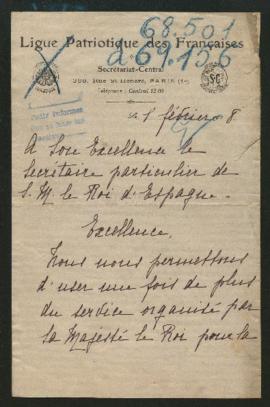 68.501
Ligue Patriotique des Françaises
d 69.156
Secrétariat-Central
368, Rue St Honoré, PARIS (1er)
Téléphone : Central 12 09
1 février 8
A Son Excellence le
Secrétaire particulier de
S. M. le Roi d'Espagne.
Excellence,
Nous nous permettons
d'user une fois de plus
du service organisé par
Sa Majesté le Roi pour la